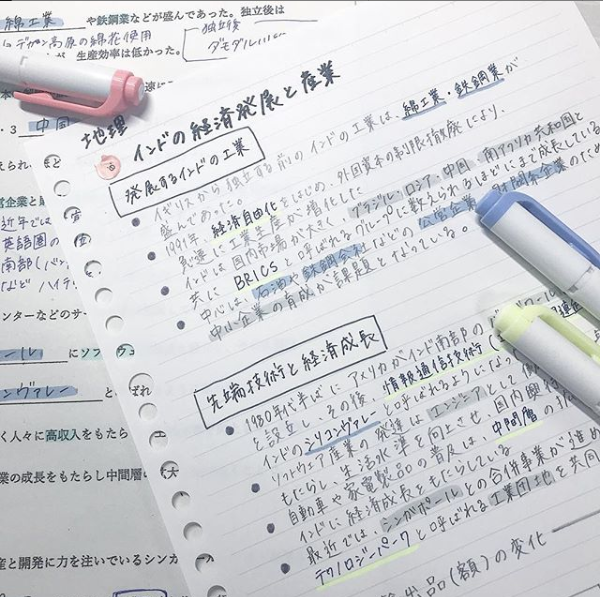 綿工業 や鉄鋼業などが盛んであった。独立後は
デカン高原の綿花使用
独立後
ダモダル
が、生産効率は低かった。
中国
地理
インドの経済発展と産業
発展するインドの工業
イギリスから独立する前のインドの工業は、綿工業・鉄鋼業が
盛んであった。
1991年、経済自由化をはじめ、外国資本の制限撤廃により、
急速に工業生産が増化した
インドは国内市場が大きく、ブラジル・ロシア、中国、南アフリカ共和国と
共に BRICSと呼ばれるグループに数えられるほどにまで成長している
中心は、石油や鉄鋼会社などの公営企業、財閥系企業のため
中小企業の育成が課題となっている。
先端技術と経済成長
1980年代半ばにアメリカがインド南部の
を設立し、その後、情報通信技術
インドのシリコンヴァレーと呼ばれるようになっ
ソフトウェア産業の発達はエンジニアとして
もたらし、生活水準を向上させ、国内
自動車や家電製品の普及は、中間層の
インドに経済成長をもたらしている
最近では、シンガポールとの合併事業が進め
テクノロジーパークと呼ばれる工業団地を共同
えられ、
営企業と
近年では
英語圏の
南部(バン
など ハイテ
ンターなどのサー
ール にソフ
ンヴァレー
く人々に高収入をもたら
業の成長をもたらし中間層の
産と開発に力を注いでいるシンガ
品(額)の変化